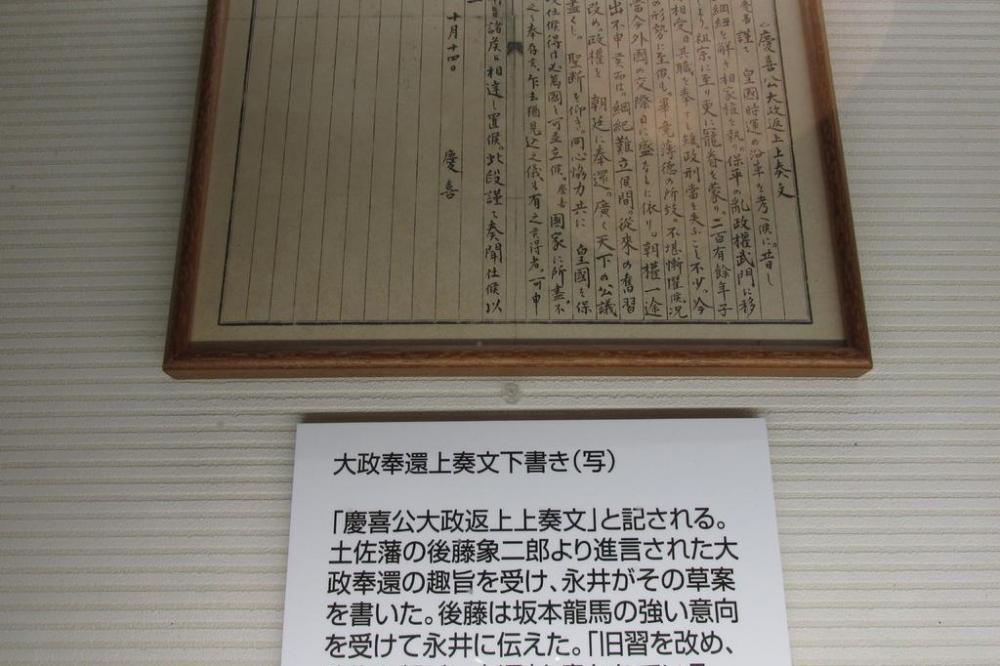 慶喜公大政返上上奏文
慶喜謹て 皇國時運の沿革を考へ候に。昔し
綱紐を解き相家權を執り。保平の亂政權武門に移
より。祖宗に至り更に寵眷を蒙り。二百有餘年子
相受。臣其職を奉と雖。政刑當を失ふこと不少。今
の形勢に至候も。畢竟薄德の所致。不堪慚懼候。況
當今外國の交際日に盛なるに依り。朝權一途
出不申候而は。綱紀難立候間。從來の舊習
改め政權を 朝廷に奉還。廣く天下の公議
盡くし。聖斷を仰き。同心協力共に 皇國を保
仕候得は。必萬國と可並立候。慶喜 國家に所盡。不
之と奉存候。乍去猶見込之儀も有之候得者。可申
旨諸侯に相達し置候。此段謹て奏聞仕候以
十月十四日 慶喜
大政奉還上奏文下書き(写)
「慶喜公大政返上上奏文」と記される。
土佐藩の後藤象二郎より進言された大
政奉還の趣旨を受け、永井がその草案
を書いた。後藤は坂本龍馬の強い意向
を受けて永井に伝えた。「旧習を改め、